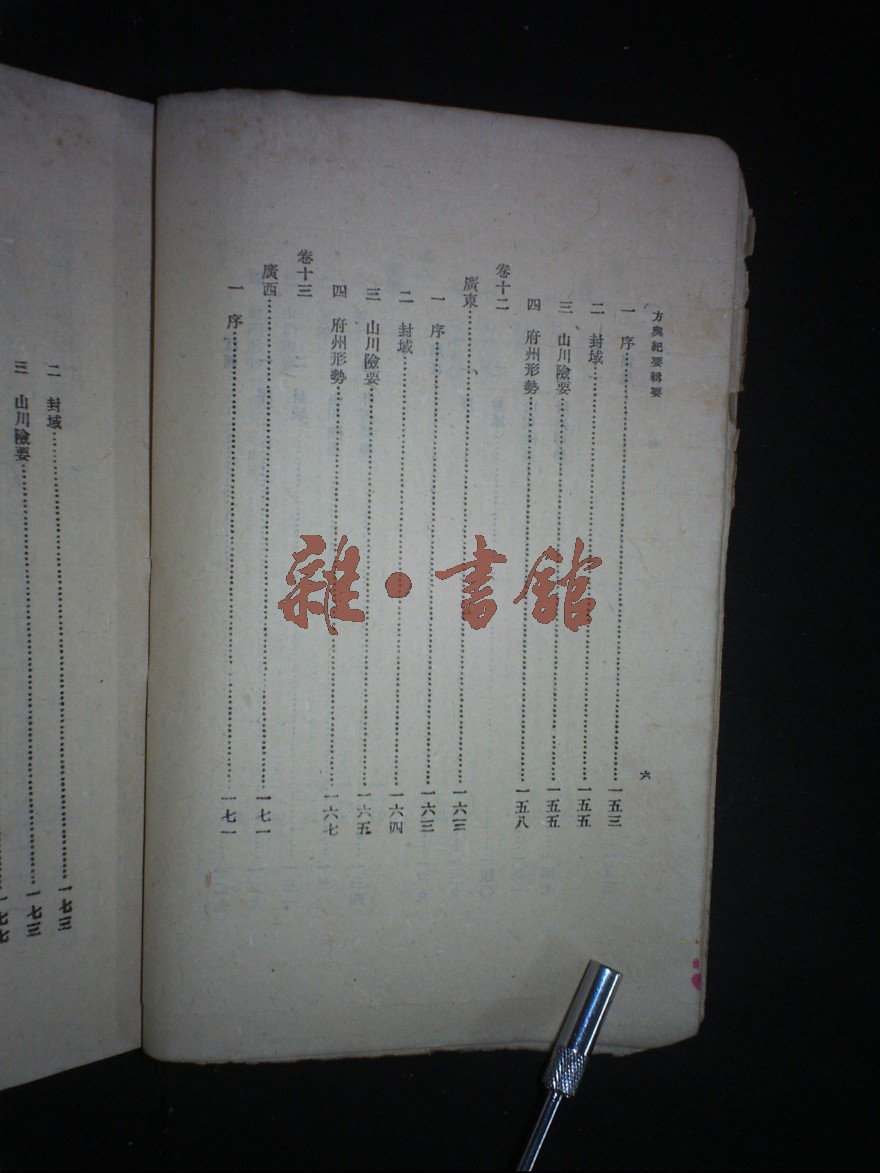 方輿紀要輯要
六
一 序 一五三
二 封域 一五五
三 山川險要 一五五
四 府州形勢 一五八
卷十二
廣東 一六三
一 序 一六三
二 封域 一六四
三 山川險要 一六五
四 府州形勢 一六七
卷十三
廣西 一七一
一 序 一七一
二 封域 一七三
三 山川險要 一七三
一七七
雜·書館